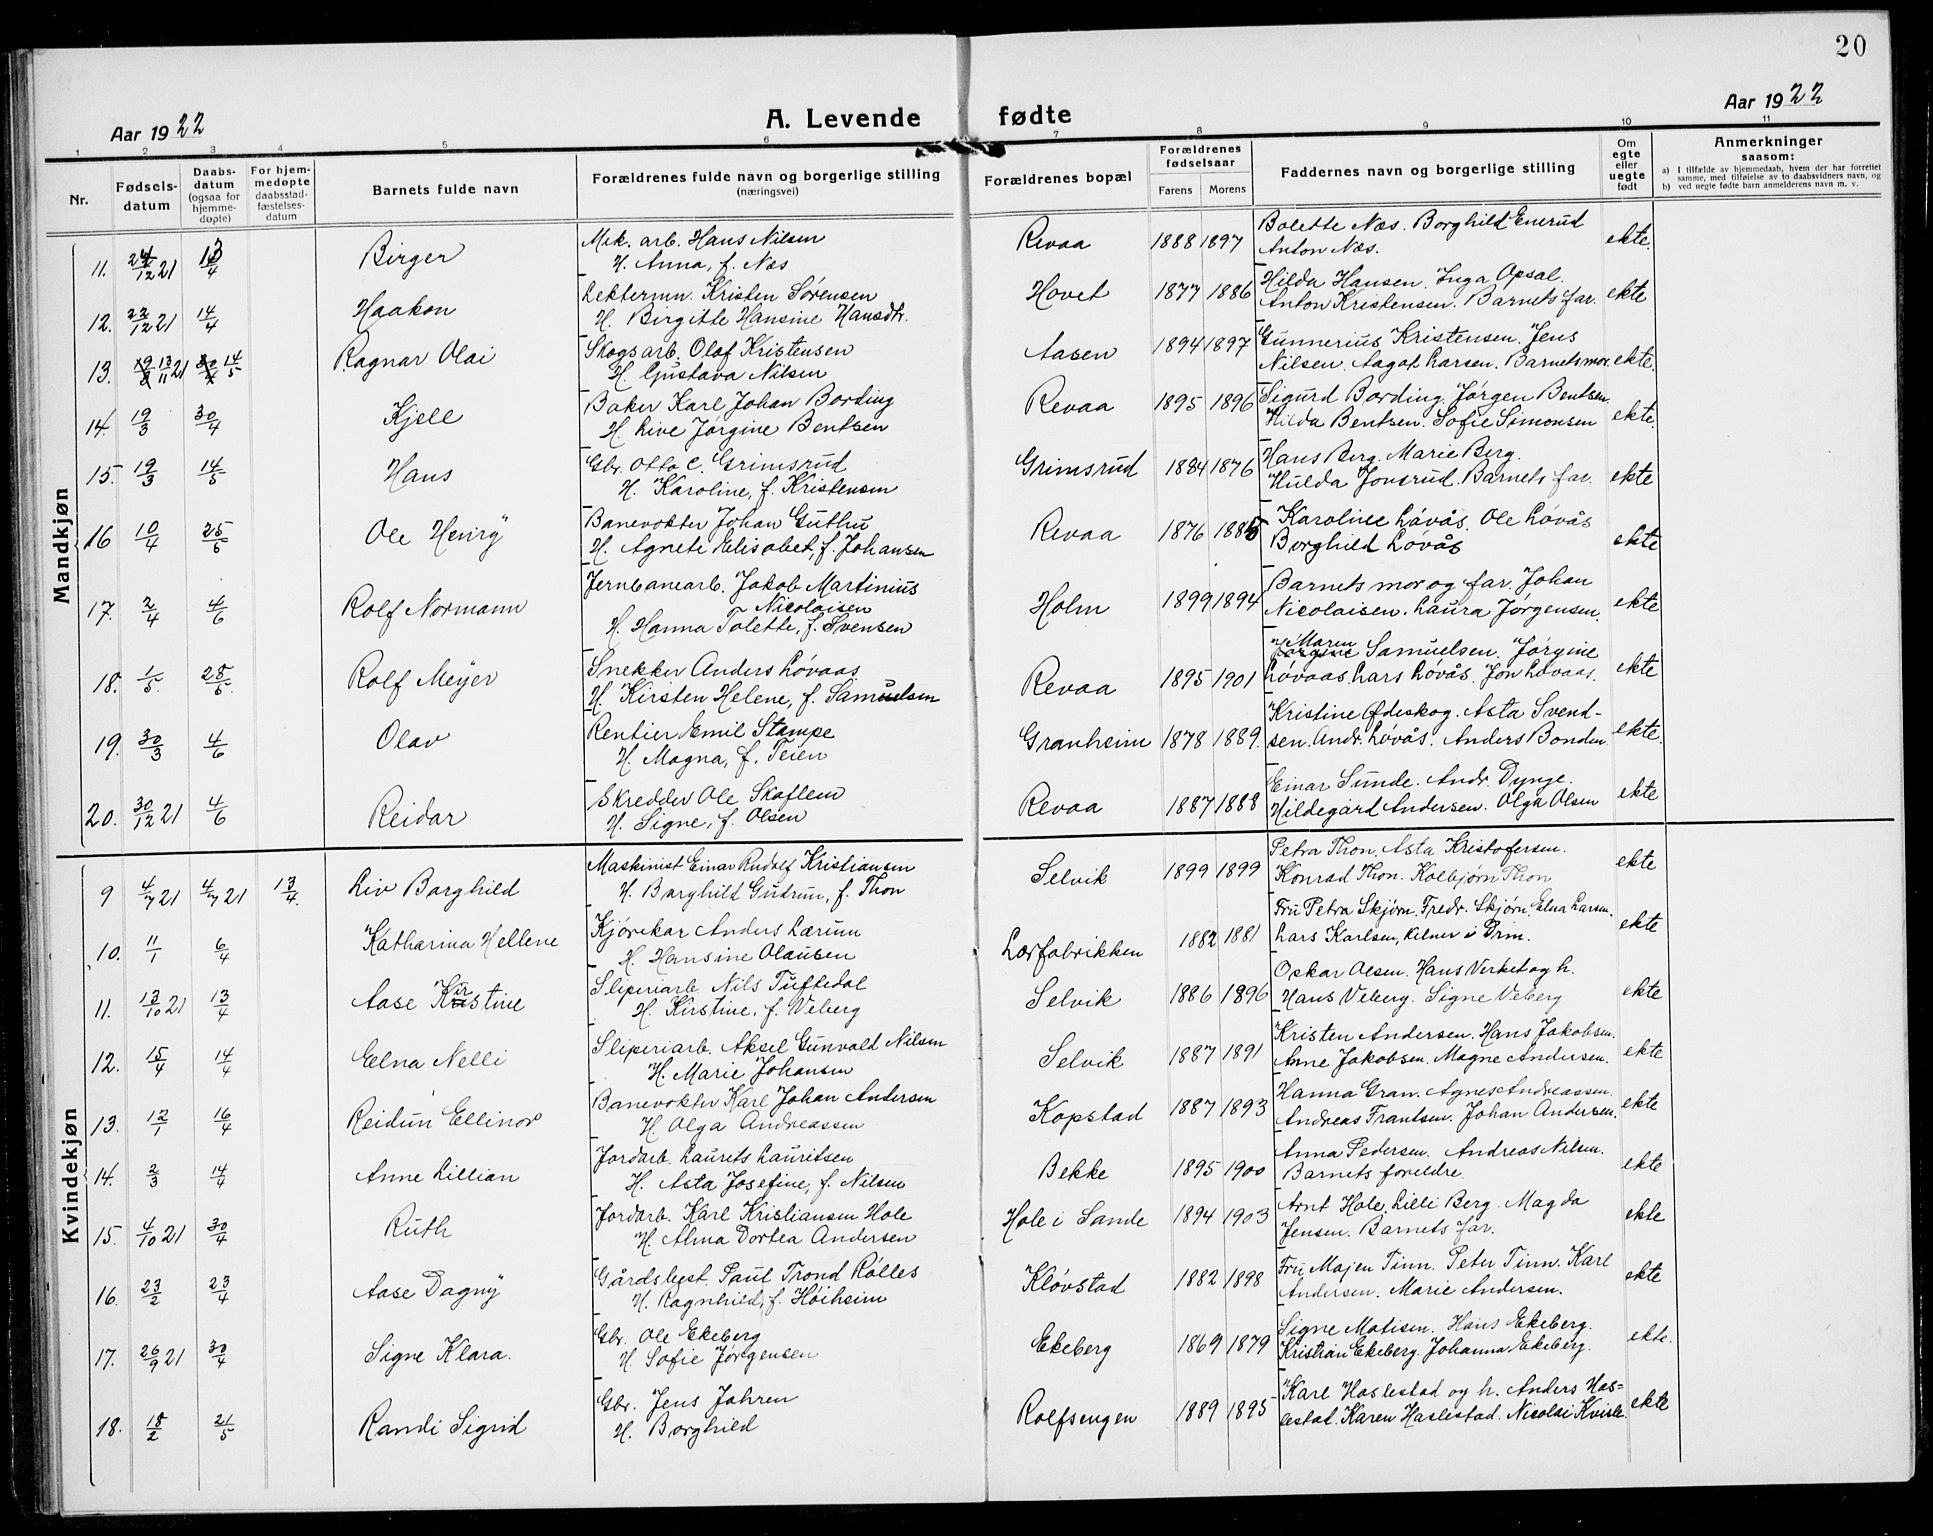 20
Aar 1922
A. Levende fødte
Aar 1922
1 2 3 4 5 6 7 8 9 10 11
Nr.
Fødsels-
datum
Daabs-
datum
(ogsaa for
hjemme-
døpte)
For hjem-
medøpte
daabsstad-
fæstelses-
datum
Barnets fulde navn
Forældrenes fulde navn og borgerlige stilling
(næringsvei)
Forældrenes bopæl
Forældrenes
fødselsaar
Farens Morens
Faddernes navn og borgerlige stilling
Om
egte
eller
uegte
født
Anmerkninger
saasom:
a) I tilfælde av hjemmedaab, hvem der har forrettet
samme, med tilføielse av to daabsvidners navn, og
b) ved uegte fødte barn anmelderens navn m. v.
Mandkjøn
11. 24/12 21 13/4 Birger Mek. arb. Hans Nilsen Revaa 1888 1897 Bolette Næs. Borghild Enerud ekte.
H. Anna, f. Næs Anton Næs.
12. 23/12 21 14/4 Haakon Lektermn. Kristen Sørensen Hovet 1877 1886 Hilda Hansen. Inga Opsal. ekte
H. Birgitte Hansine Hansdtr. Anton Kristensen. Barnets far.
13. 13/11 21 14/5 Ragnar Olai Skogsarb. Olaf Kristensen Aasen 1894 1897 Gunnerius Kristensen. Jens
H. Gustava Nilsen Nilsen. Aagot Larsen. Barnets mor. ekte.
14. 19/3 30/4 Kjell Baker Karl Johan Bording Revaa 1895 1896 Sigurd Bording. Jørgen Bentsen.
H. Live Jørgine Bentsen Hilda Bentsen. Sofie Simonsen ekte.
15. 19/3 14/5 Hans Gbr. Otto C. Grimsrud Grimsrud 1884 1876 Hans Berg. Marie Berg.
H. Karoline, f. Kristensen Hulda Jonsrud. Barnets far. ekte
16 10/4 25/5 Ole Henry Banevokter Johan Guthu Revaa 1876 1885 Karoline Løvås. Ole Løvås
H. Agnete Elisabet, f. Johansen Borghild Løvås ekte
17. 2/4 4/6 Rolf Normann Jernbanearb. Jakob Martinius Holm 1899 1894 Barnets mor og far. Johan
Nicolaisen Nicolaisen. Laura Jørgensen. ekte
H. Hanna Tolette, f. Svensen
18. 1/5 28/5 Rolf Meyer Snekker Anders Løvaas Revaa 1895 1901 Maren Samuelsen. Jørgine
H. Kirsten Helene, f. Samuelsen Løvaas. Lars Løvås. Jon Løvaas. ekte
19. 30/3 4/6 Olav Rentier Emil Stampe Granheim 1878 1889. Kristine Ødeskog. Asta Svend-
H. Magna, f. Teien sen. Andr. Løvås. Anders Bonden. ekte.
20. 30/12 21 4/6 Reidar Skredder Ole Skoflem Revaa 1887 1888 Einar Sunde. Andr. Dynge.
H. Signe, f. Olsen Hildegard Andersen. Olga Olsen ekte
Kvindekjøn
9 4/7 21 4/7 21 13/4. Liv Borghild Maskinist Einar Rudolf Kristiansen Selvik 1899 1899 Petra Thon. Asta Kristofersen. ekte
H. Borghild Gudrun, f. Thon Konrad Thon. Kolbjørn Thon
10. 11/1 6/4 Katharina Hellene Kjørekar Anders Lærum Lærfabrikken 1882 1881 Fru Petra Skjørn. Fredr. Skjørn. Elna Larsen. ekte
H. Hansine Olausen Lars Karlsen, Kelner i Drm.
11. 13/10 21 13/4 Aase Kirstine Sliperiarb. Nils Tuftedal Selvik 1886 1896 Oskar Olsen. Hans Verket og h. ekte
H. Kirstine, f. Veberg Hans Veberg. Signe Veberg
12. 15/4 14/4 Elna Nelli Sliperiarb. Aksel Gunvald Nilsen Selvik 1887 1891 Kristen Andersen. Hans Jakobsen. ekte
H. Marie Johansen Anne Jakobsen. Magne Andersen.
13. 12/1 16/4 Reidun Ellinor Banevokter Karl Johan Andersen Kopstad 1887 1893 Hanna Gran. Agnes Andreassen. ekte
H. Olga Andreassen Andreas Frantsen. Johan Andersen.
14. 2/3 14/4 Anne Lillian Jordarb. Laurets Lauritsen Bekke 1895 1900 Anna Pedersen. Andreas Nilsen. ekte
H. Asta Josefine, f. Nilsen Barnets foreldre.
15. 4/10 21 30/4 Ruth Jordarb. Karl Kristiansen Hole Hole i Sande 1894 1903 Arnt Hole. Lilli Berg. Magda ekte
H. Alma Dortea Andersen Jensen. Barnets far.
16. 23/2 23/4 Aase Dagny Gårdsbest. Paul Trond Rølles Kløvstad 1882 1898 Fru Majen Tinn. Peter Tinn. Karl ekte
H. Ragnhild, f. Høiheim Andersen. Marie Andersen.
17. 26/9 21 30/4 Signe Klara. Gbr. Ole Ekeberg Ekeberg 1869 1879 Signe Matisen. Hans Ekeberg. ekte.
H. Sofie Jørgensen Kristian Ekeberg. Johanna Ekeberg.
18. 18/2 21/5 Randi Sigrid Gbr. Jens Jahren Rolfsengen 1889 1895 Karl Haslestad og h. Anders Has= ekte
H. Borghild lestad. Karen Haslestad. Nicolai Kvisle.